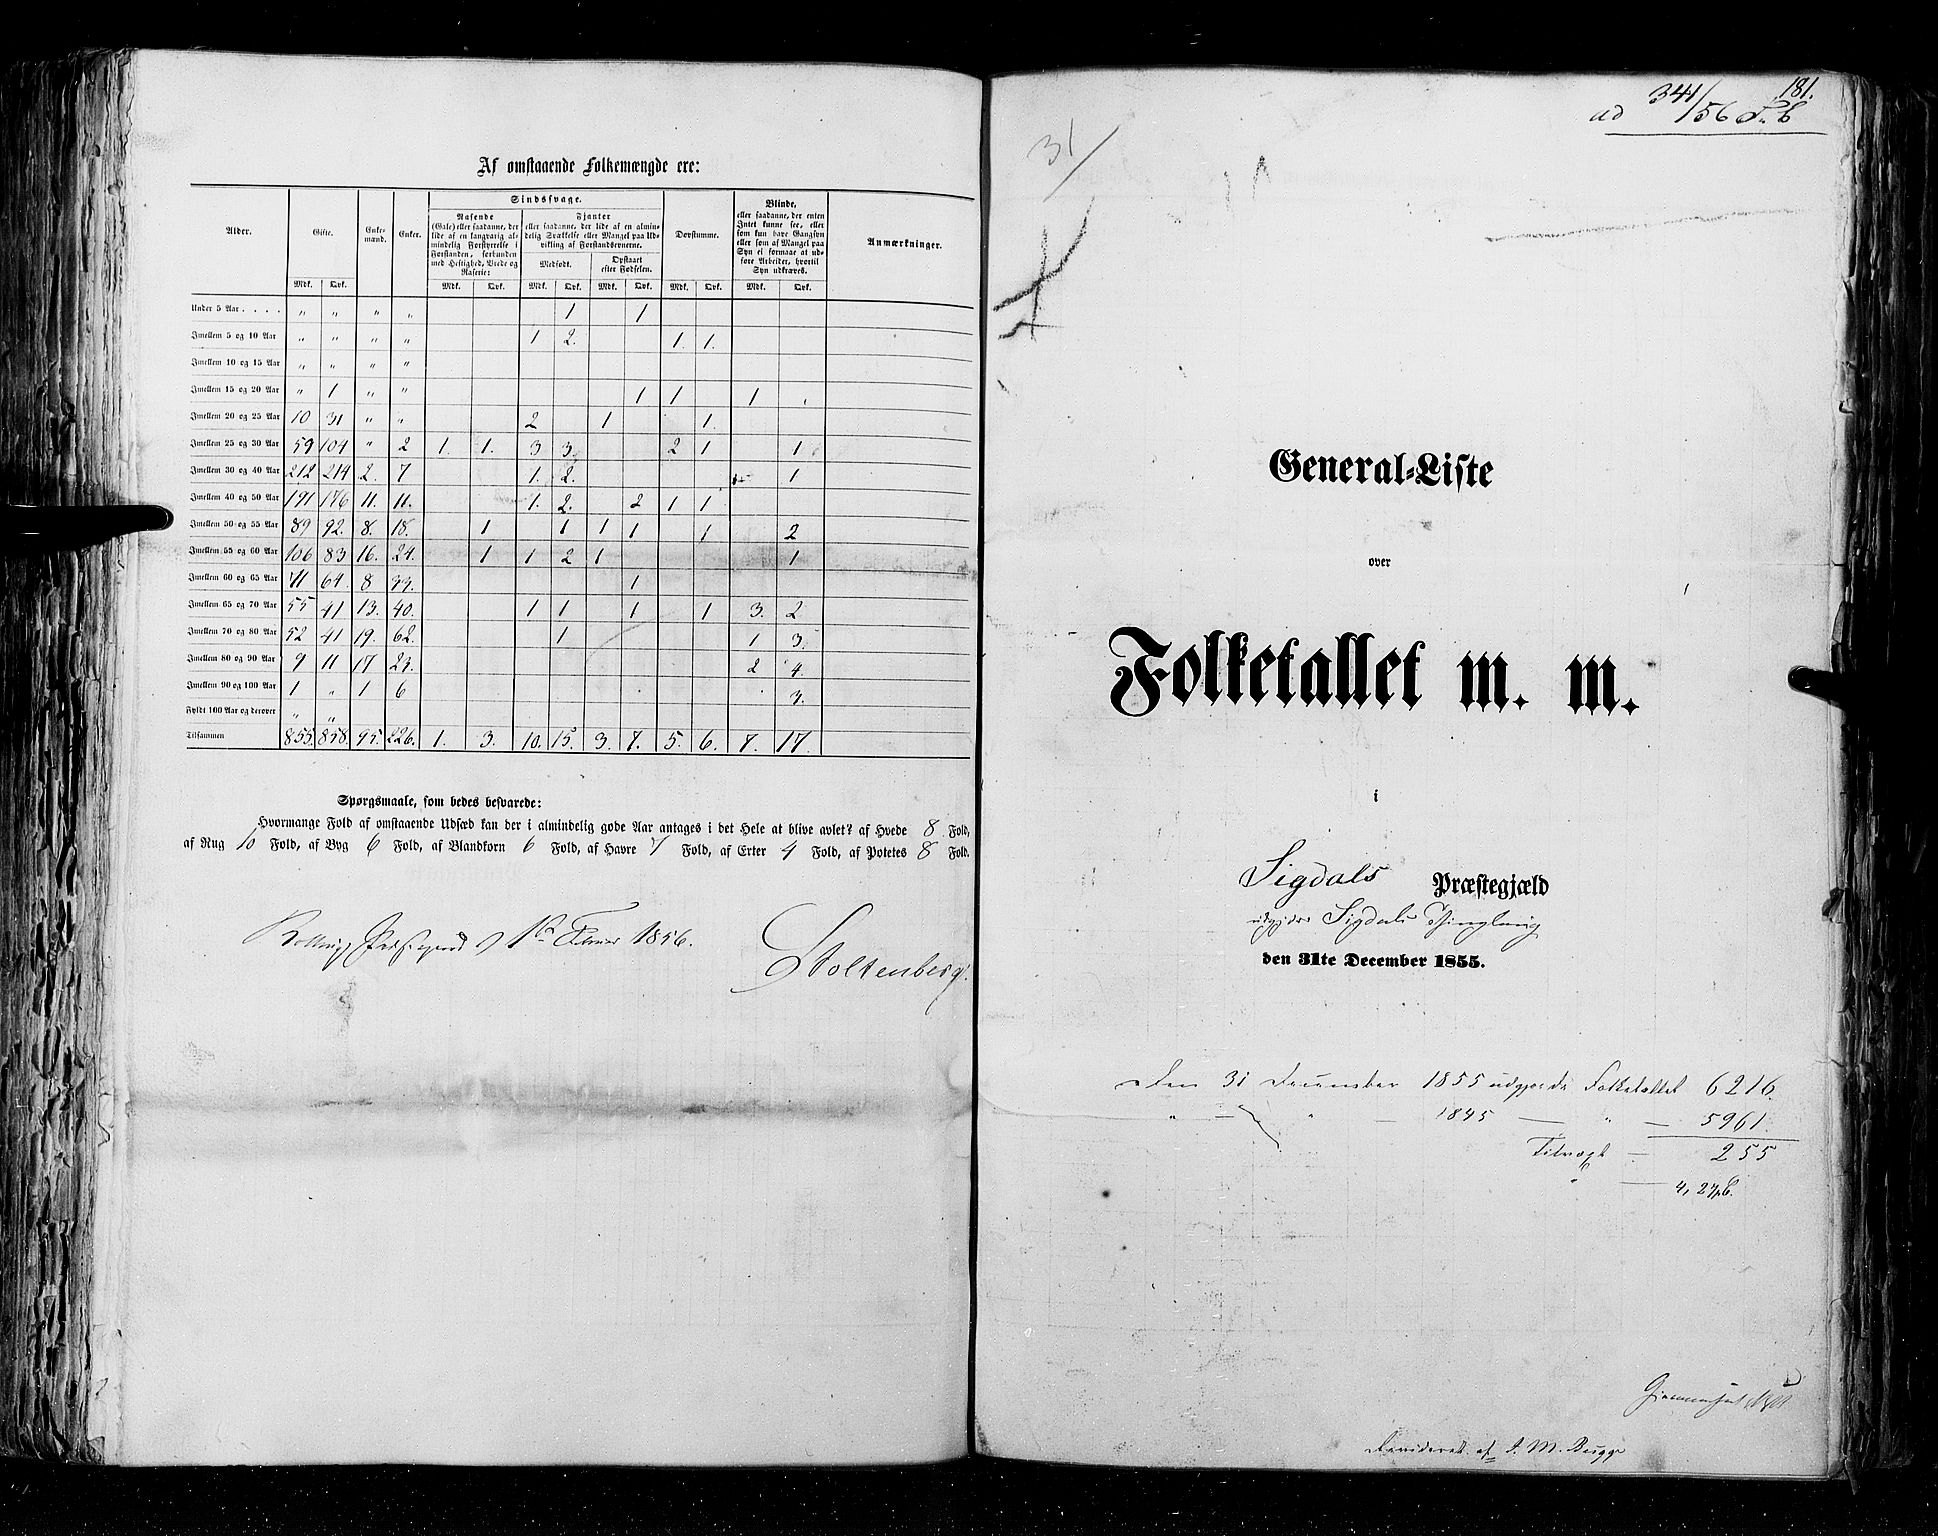 Af omstaaende Folkemængde ere:
Alder. | Gifte. | Enke-mænd. | Enker. | Sindssvage. | Døvstumme. | Blinde, eller saadanne, der enten Intet kunne see, eller som kun have Gangsyn eller som af Mangel paa Syn ei formaae at udføre Arbeider, hvortil Syn udkræves. | Anmærkninger.
Rasende (Gale) eller saadanne, der lide af en langvarig almindelig Forstyrrelse i Forstanden, forbunden med Heftighed, Vrede og Raserie: | Fjanter eller saadanne, der lide af en almindelig Svækkelse eller Mangel paa Udvikling af Forstandsevnerne.
Medfødt. | Opstaaet efter Fødselen.
Mdk. | Qvk. | Mdk. | Qvk. | Mdk. | Qvk. | Mdk. | Qvk. | Mdk. | Qvk. | Mdk. | Qvk.
Under 5 Aar . . . . | " | " | " | " | | | | 1 | | 1 | | | | |
Imellem 5 og 10 Aar | " | " | " | " | | | 1 | 2. | | | 1. | 1. | | |
Imellem 10 og 15 Aar | " | " | " | " | | | | | | | | | | |
Imellem 15 og 20 Aar | " | 1 | " | " | | | | | | 1 | 1 | | 1 | |
Imellem 20 og 25 Aar | 10 | 31 | " | " | | | 2 | | 1 | | | 1. | | |
Imellem 25 og 30 Aar | 59 | 104 | " | 2 | 1. | 1. | 3 | 3. | | | 2 | 1 | | 1 |
Imellem 30 og 40 Aar | 212 | 214 | 2. | 7 | | | 1. | 2. | | | | | | 1 |
Imellem 40 og 50 Aar | 191 | 176 | 11. | 11. | | | 1. | 2. | | 2 | 1 | 1 | | |
Imellem 50 og 55 Aar | 89 | 92. | 8. | 18. | | 1 | | 1 | 1 | 1 | | 1 | | 2 |
Imellem 55 og 60 Aar | 106 | 83 | 16. | 24. | | 1 | 1 | 2 | 1 | | | | | 1 |
Imellem 60 og 65 Aar | 71 | 64. | 8 | | | | | | | 1 | | | | |
Imellem 65 og 70 Aar | 55 | 41 | 13. | 40. | | | 1 | 1 | | 1 | | 1 | 3. | 2 |
Imellem 70 og 80 Aar | 52 | 41 | 19. | 62. | | | | 1 | | | | | 1 | 3. |
Imellem 80 og 90 Aar | 9 | 11 | 17 | 23. | | | | | | | | | 2 | 4. |
Imellem 90 og 100 Aar | 1 | " | 1 | 6 | | | | | | | | | | 3. |
Fyldt 100 Aar og derover | " | " | | | | | | | | | | | | |
Tilsammen | 855. | 858. | 95. | 226. | 1. | 3. | 10. | 15. | 3. | 7. | 5. | 6. | 7. | 17. |
Spørgsmaale, som bedes besvarede:
Hvormange Fold af omstaaende Udsæd kan der i almindelig gode Aar antages i det Hele at blive avlet? af Hvede 8 Fold,
af Rug 10 Fold, af Byg 6 Fold, af Blandkorn 6 Fold, af Havre 7 Fold, af Erter 4 Fold, af Potetes 8 Fold.
1856.
Stoltenberg.
181.
ad 341/56
31/
General-Liste
over
Folketallet m. m.
i
Sigdals Præstegjæld
Sigdals Thinglaug
den 31te December 1855.
Den 31 December 1855 udgjorde Folketallet 6216.
" — " — 1845 — " — 5961.
Tilvæxt — 255
" — 4,27
Revideret af M. Bugge